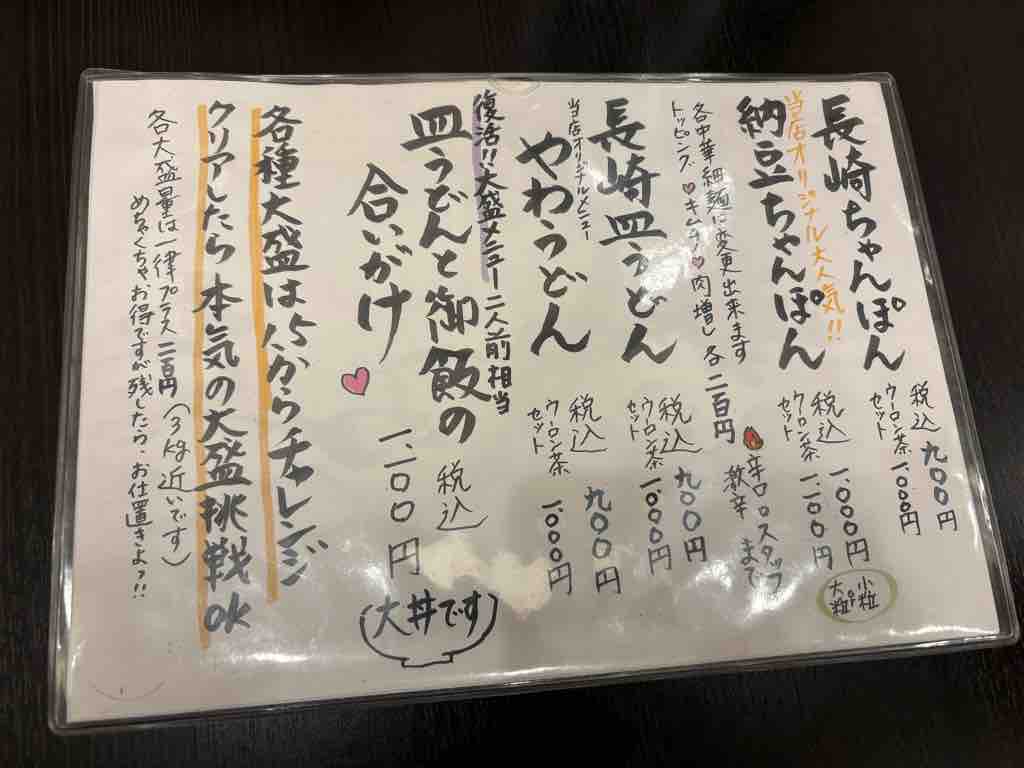 長崎ちゃんぽん
税込 九〇〇円
ウーロン茶セット 一、〇〇〇円
当店オリジナル大人気!!
納豆ちゃんぽん
税込 一、〇〇〇円
ウーロン茶セット 一、一〇〇円
小粒 大粒
各中華細麺に変更出来ます
トッピング♥キムチ♥肉増し各二百円
辛口スタッフ
激辛まで
長崎皿うどん
税込 九〇〇円
ウーロン茶セット 一、〇〇〇円
当店オリジナルメニュー
やわうどん
税込 九〇〇円
ウーロン茶セット 一、〇〇〇円
復活!!大盛メニュー二人前相当
皿うどんと御飯の
合いがけ
税込
一、二〇〇円
(大丼です)
各種大盛は1.5からチャレンジ
クリアしたら本気の大盛挑戦ok
各大盛量は一律プラス二百円(3kg近いです)
めちゃくちゃお得ですが残したら、お仕置きよっ!!